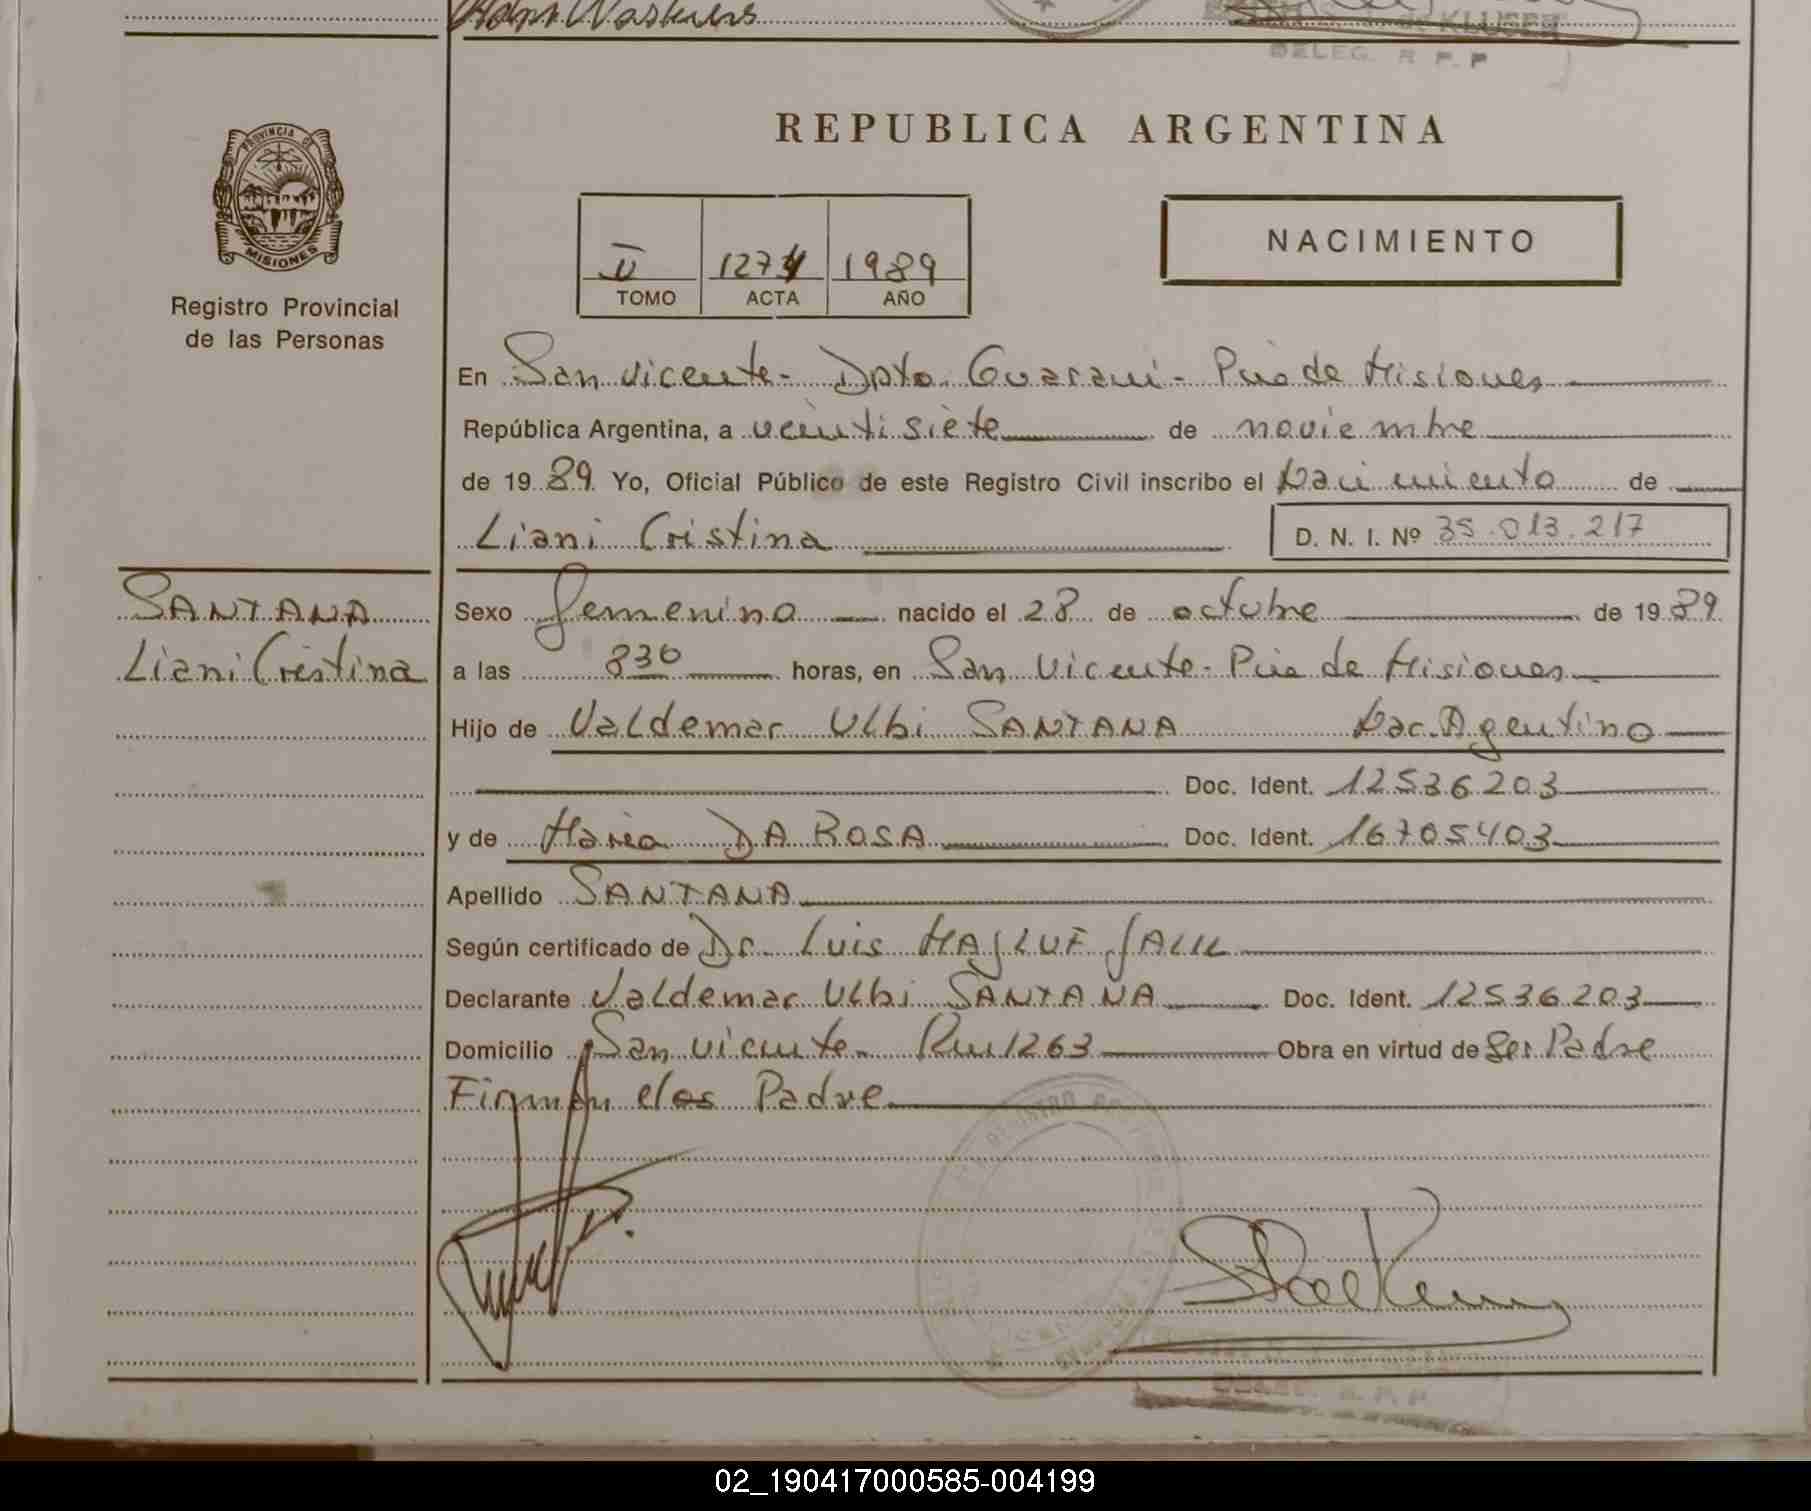 Adan Waskiers
KLUSER
DELEG. R P. P
PROVINCIA DE
MISIONES
Registro Provincial
de las Personas
REPUBLICA ARGENTINA
II 1989
TOMO ACTA AÑO
NACIMIENTO
En San Vicente - Dpto. Guaraní - Pcia de Misiones
República Argentina, a veintisiete de noviembre
de 1989 Yo, Oficial Público de este Registro Civil inscribo el Nacimiento de
Liani Cristina D. N. I. Nº 35.013.217
SANTANA
Liani Cristina
Sexo femenino nacido el 28 de octubre de 1989
a las 830 horas, en San Vicente - Pcia de Misiones
Hijo de Valdemar Ulbi SANTANA Nac. Agentino
Doc. Ident. 12536203
y de Maria DA ROSA Doc. Ident. 16705403
Apellido SANTANA
Según certificado de Dr. Luis HAJLUF JALIL
Declarante Valdemar Ulbi SANTANA Doc. Ident. 12536203
Domicilio San Vicente - Rn1263 Obra en virtud de ser Padre
Firman el Padre
02_190417000585-004199